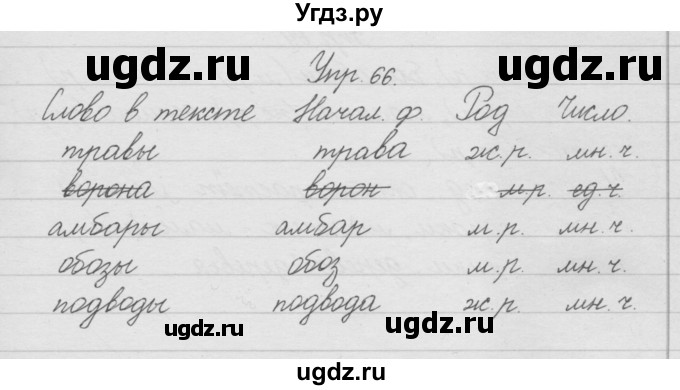 Угдз.ру
ugdz.ru ugdz.ru
Упр. 66.
Слово в тексте Начал. ф. Род Число.
травы трава ж.р. мн.ч.
ворона ворон м.р. ед.ч.
амбары амбар м.р. мн.ч.
обозы обоз м.р. мн.ч.
подводы подвода ж.р. мн.ч.
ugdz.ru ugdz.ru
ugdz.ru